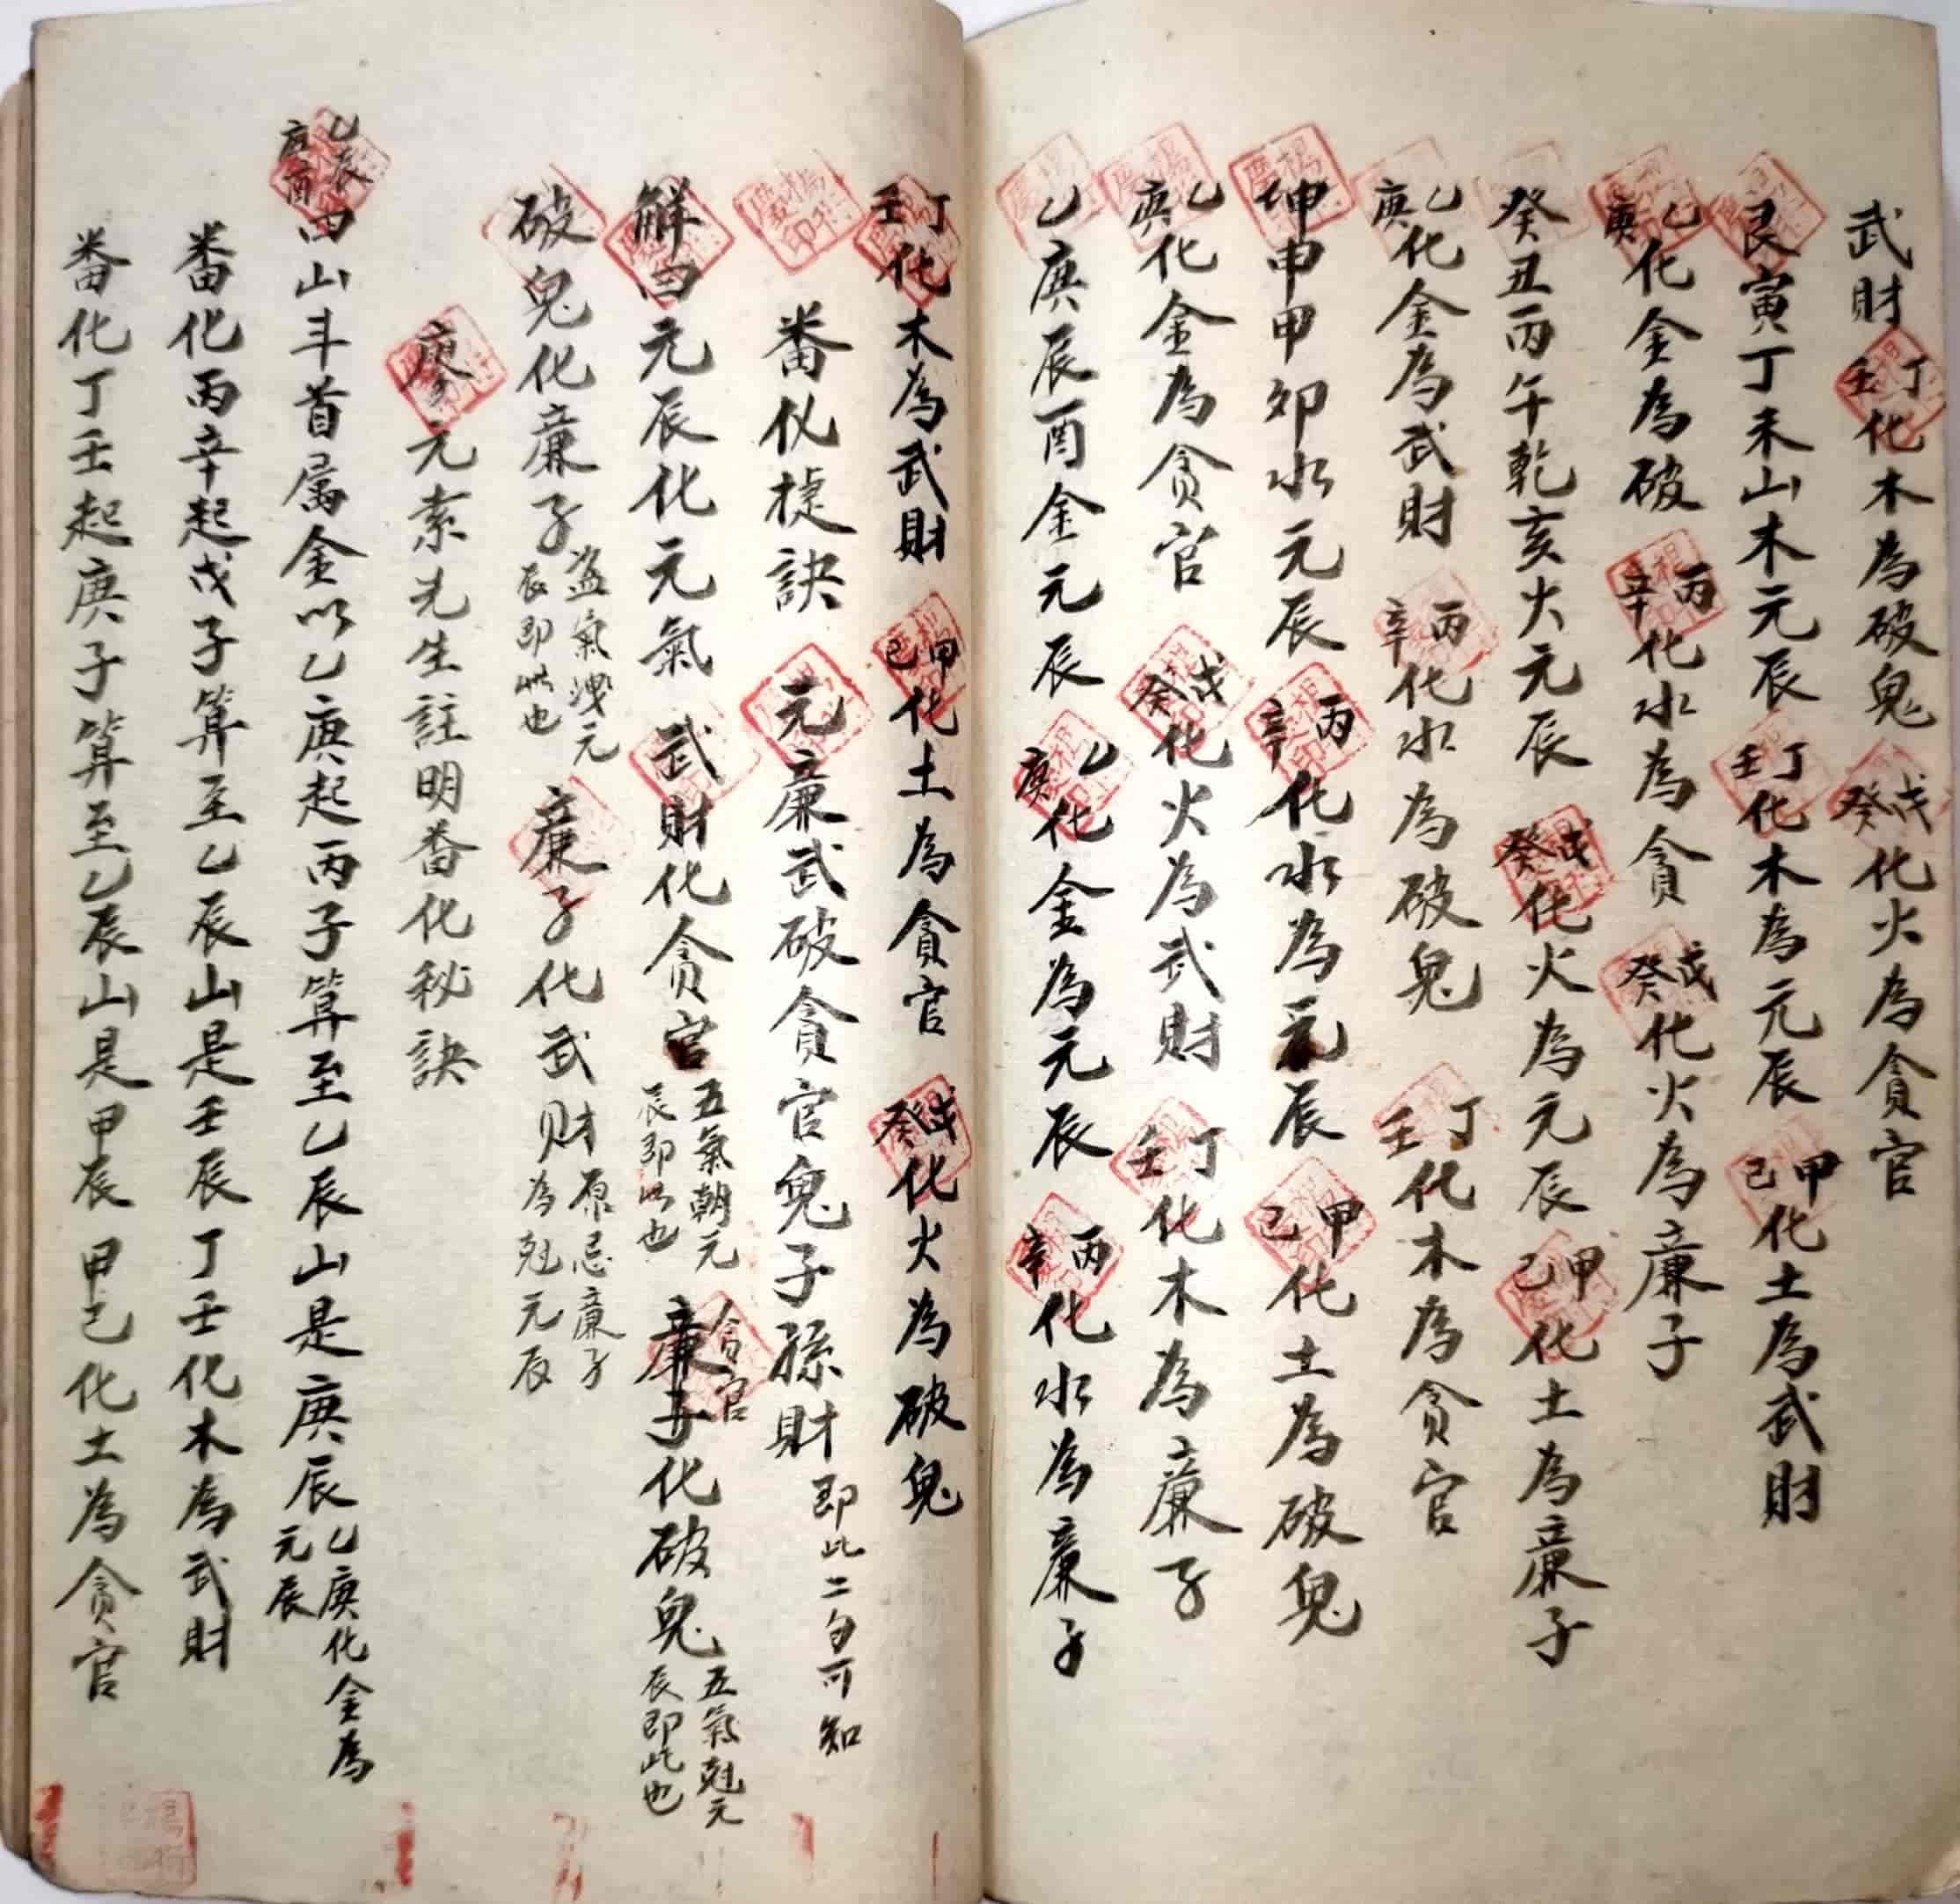 武財 丁壬化木為破鬼 戊癸化火為貪官
艮寅丁未山木元辰 丁壬化木為元辰 甲己化土為武財
乙庚化金為破 丙辛化水為貪 戊癸化火為廉子
癸丑丙午乾亥火元辰 戊癸化火為元辰 甲己化土為廉子
乙庚化金為武財 丙辛化水為破鬼 丁壬化木為貪官
坤申甲卯水元辰 丙辛化水為元辰 甲己化土為破鬼
乙庚化金為貪官 戊癸化火為武財 丁壬化木為廉子
乙庚辰酉金元辰 乙庚化金為元辰 丙辛化水為廉子
丁壬化木為武財 甲己化土為貪官 戊癸化火為破鬼
畨化捷訣 元廉武破貪官鬼子孫財 即此二句可知
觧曰元辰化元氣 武財化貪官 五氣朝元辰即此也 貪官廉子化破鬼 五氣尅元辰即此也
破鬼化廉子 盗氣洩元辰即此也 廉子化武财 原忌廉子為尅元辰
廖元素先生註明畨化秘訣
乙辰庚酉四山斗首属金以乙庚起丙子算至乙辰山是庚辰 乙庚化金為元辰
畨化丙辛起戊子算至乙辰山是壬辰丁壬化木為武財
畨化丁壬起庚子算至乙辰山是甲辰甲己化土為貪官